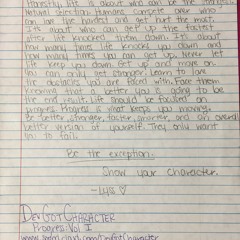 Honestly, life is about who can be the strongest.
Naturally, humans compete over who
can love the hardest and get hurt the most.
It's about who can get up the fastest
after life knocked them down. It's about
how many times life knocks you down and
how many times you can get up. Never let
life keep you down. Get up and move on.
You can only get stronger. Learn to love
the obstacles you are faced with. Face them
knowing that a better you is going to be
the end result. Life should be focused on
progress. Progress is what keeps you moving.
Be better, stronger, faster, smarter, and an overall
better version of yourself. They only want
you to fail.
Be the exception.
Show your character.
-Lys ♡
DevGotCharacter
Progress: Vol I